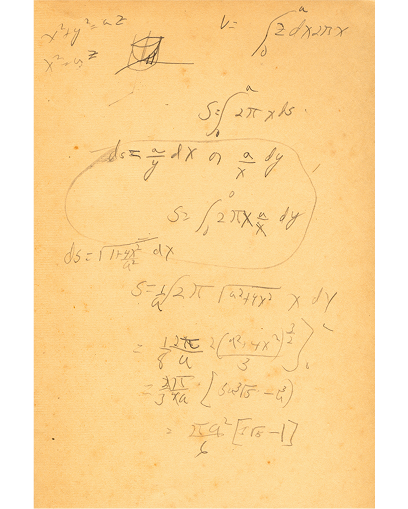 x² + y² = az
V = ∫₀ᵃ z dx 2πx
x² = az
S = ∫₀ᵃ 2π x ds
ds = a/y dx or a/x dy
S = ∫₀ᵃ 2πx a/x dy
ds = √(1+4x²/a²) dx
S = 1/a ∫ 2π √(a²+4x²) x dx
= 1/8 2π/a 2(a²+4x²)^(3/2)/3 ]₀
[5a³√5 − a³]
= πa²/6 [5√5 − 1]